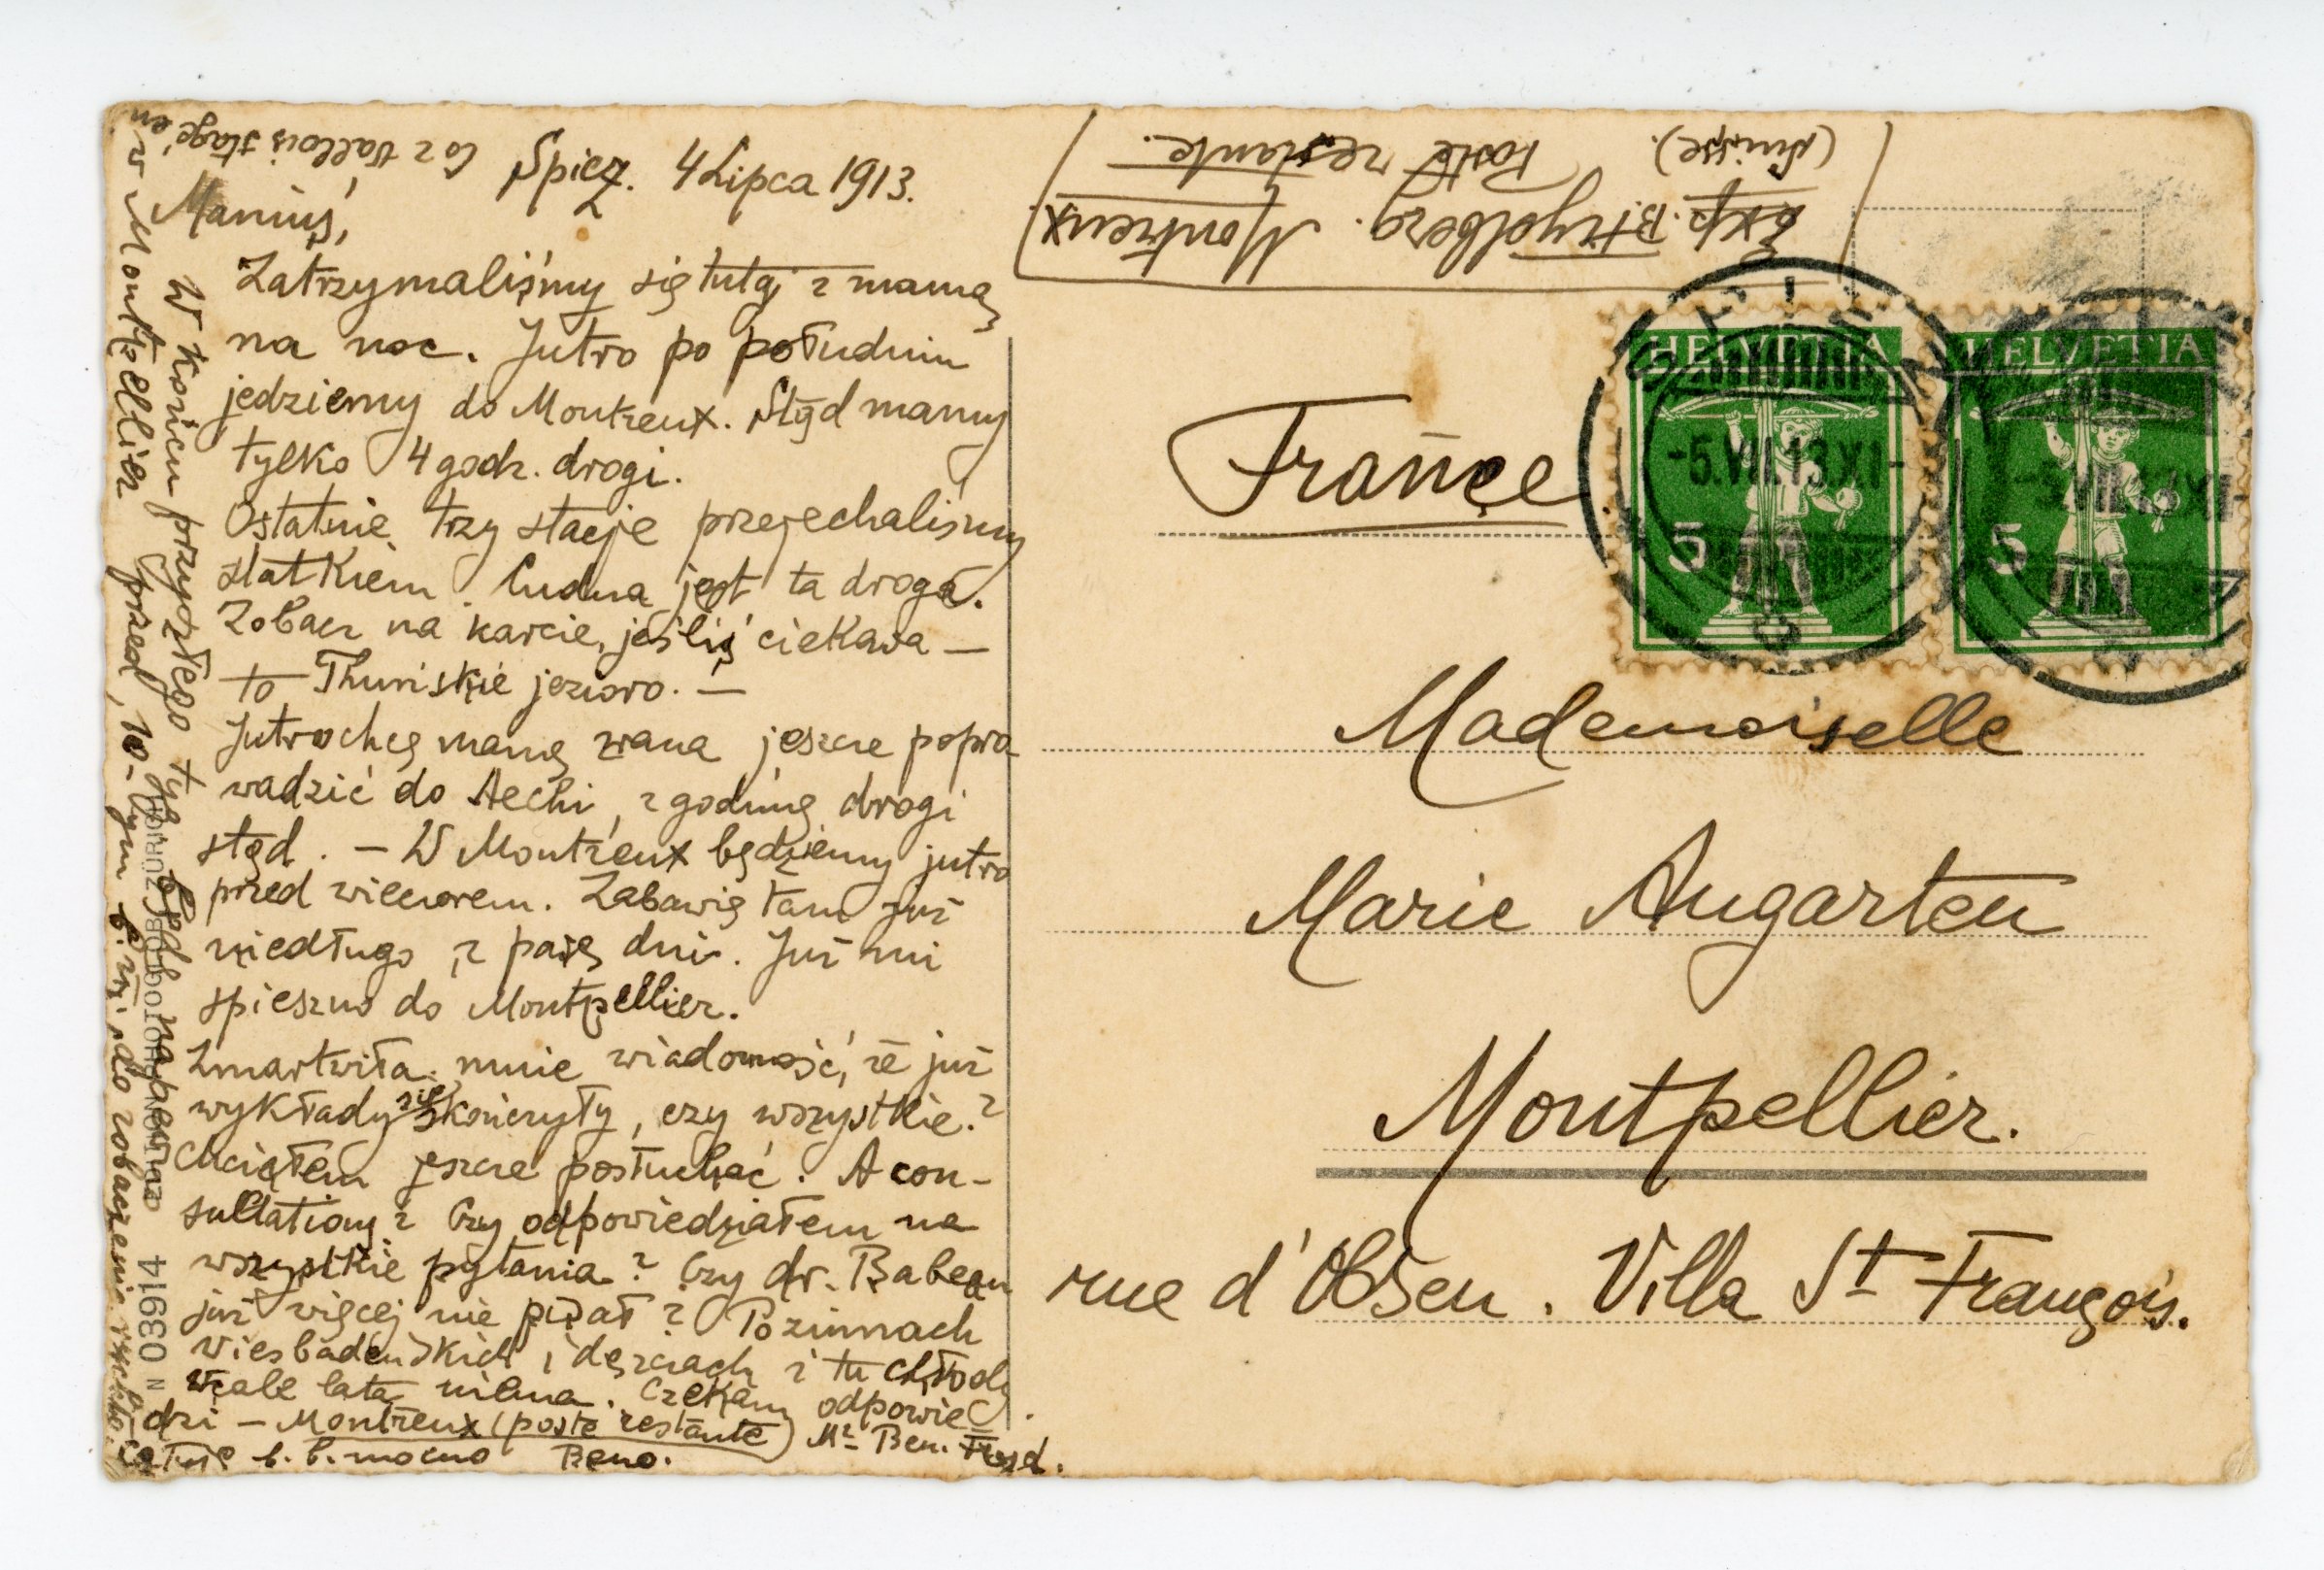 Spiez. 4 Lipca 1913.
Maniuś,
Zatrzymaliśmy się tutaj z mamą
na noc. Jutro po południu
jedziemy do Montreux. Stąd mamy
tylko 4 godz. drogi.
Ostatnie trzy stacje przejechaliśmy
statkiem. Cudna jest ta droga.
Zobacz na karcie, jeśliś ciekawa —
to Thuńskie jezioro. —
Jutro chcę mamę zrana jeszcze popro
wadzić do Aechi, z godzinę drogi
stąd. — W Montreux będziemy jutro
przed wieczorem. Zabawię tam już
niedługo, z parę dni. Już mi
spieszno do Montpellier.
Zmartwiła mnie wiadomość, że już
wykłady się skończyły, czy wszystkie?
Chciałem jeszcze posłuchać. A con-
sultationy? Czy odpowiedziałem na
wszystkie pytania? Czy dr. Babeau
już więcej nie pisał? Po zimnach
wiesbadeńskich i deszczach i tu chłody
wcale lata niema. Czekam odpowie
dzi — Montreux (poste restante) Mr Ben. Fryd.
Całuję b. b. mocno Beno.
W końcu przyszłego tyg. będę na pewno
w Montpellier przed 10-tym b. m. do zobaczenia rychło.
Co z Vallois stage'em
COMPTOIR DE PHOTOTYPIE NEUCHATEL
N 03914
Exp. B. Frydberg. Montreux
(Suisse). Poste restante.
France
HELVETIA
5
HELVETIA
5
SPIEZ
-5.VII.13.XI-
Mademoiselle
Marie Augarten
Montpellier.
rue d'Obsen. Villa St François.